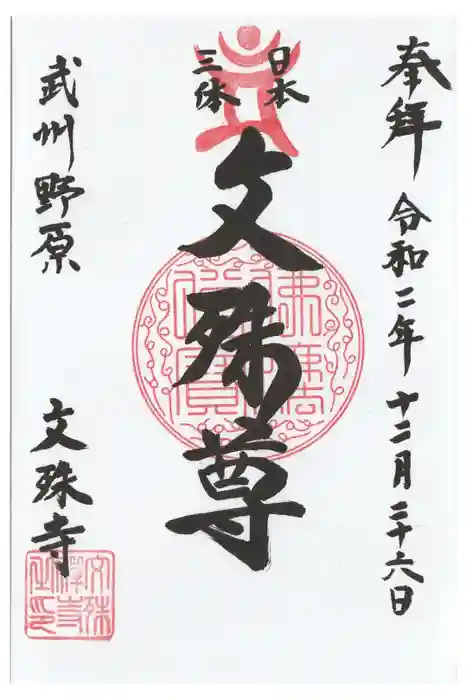 奉拝
令和二年十二月二十六日
日本
三体
文殊尊
武州野原
文殊寺
佛法僧寳